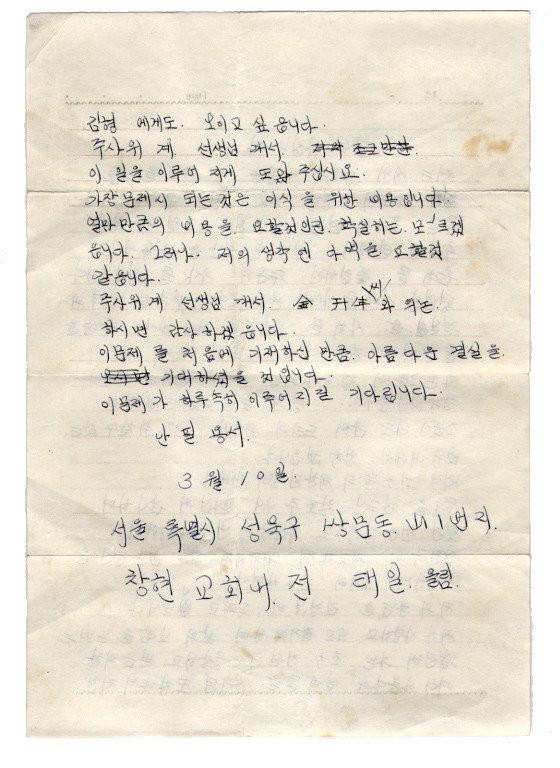 김형 에게도. 보이고 싶읍니다.
주사위 계. 선생님 께서.
이 일을 이루어 지게 도와 주십시요.
가장문제시 되는것은 이식 을 위한 비용입니다
얼만만큼의 비용을 요할것인면. 확실히는. 모르겠
읍니다. 그러나. 저의 생각엔 다액을 요할것
같읍니다.
주사위계 선생님 께서. 金 씨/과 의논.
하시면 감사하겠 읍니다.
이문제 를 처음에 기재하신 만큼. 아름다운 결실을.
기대하였을 것입니다.
이문제가 하루속히 이루어지길 기다립니다.
난 필 용서.
3 월 10일
서울 특별시 성북구 쌍문동. 山 1번지.
창현 교회내. 전 태일. 올림.